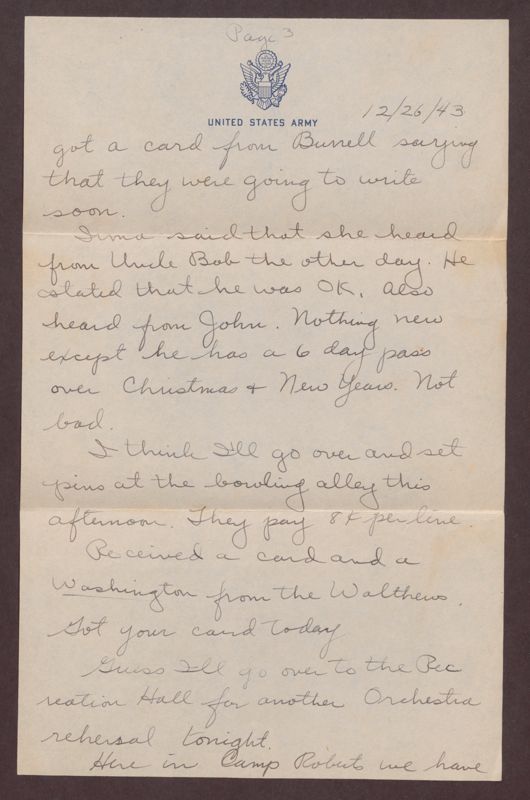 Page 3
UNITED STATES ARMY
12/26/43
got a card from Burrell saying
that they were going to write
soon.
Irma said that she heard
from Uncle Bob the other day. He
stated that he was OK. Also
heard from John. Nothing new
except he has a 6 day pass
over Christmas + New Years. Not
bad.
I think I'll go over and set
pins at the bowling alley this
afternoon. They pay 8¢ per line
Received a card and a
Washington from the Walthews.
Got your card today
Guess I'll go over to the Rec
reation Hall for another Orchestra
rehersal tonight.
Here in Camp Roberts we have